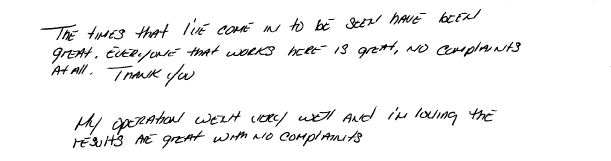 The times that I've come in to be seen have been
great. Everyone that works here is great, no complaints
At all. Thank you
My operation went very well and i'm loving the
results are great with no complaints